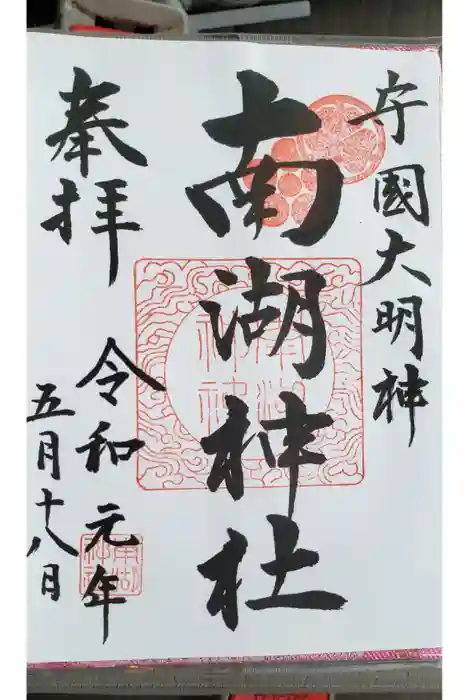 守國大明神
南湖神社
奉拝
令和元年
五月十八日
南湖神社